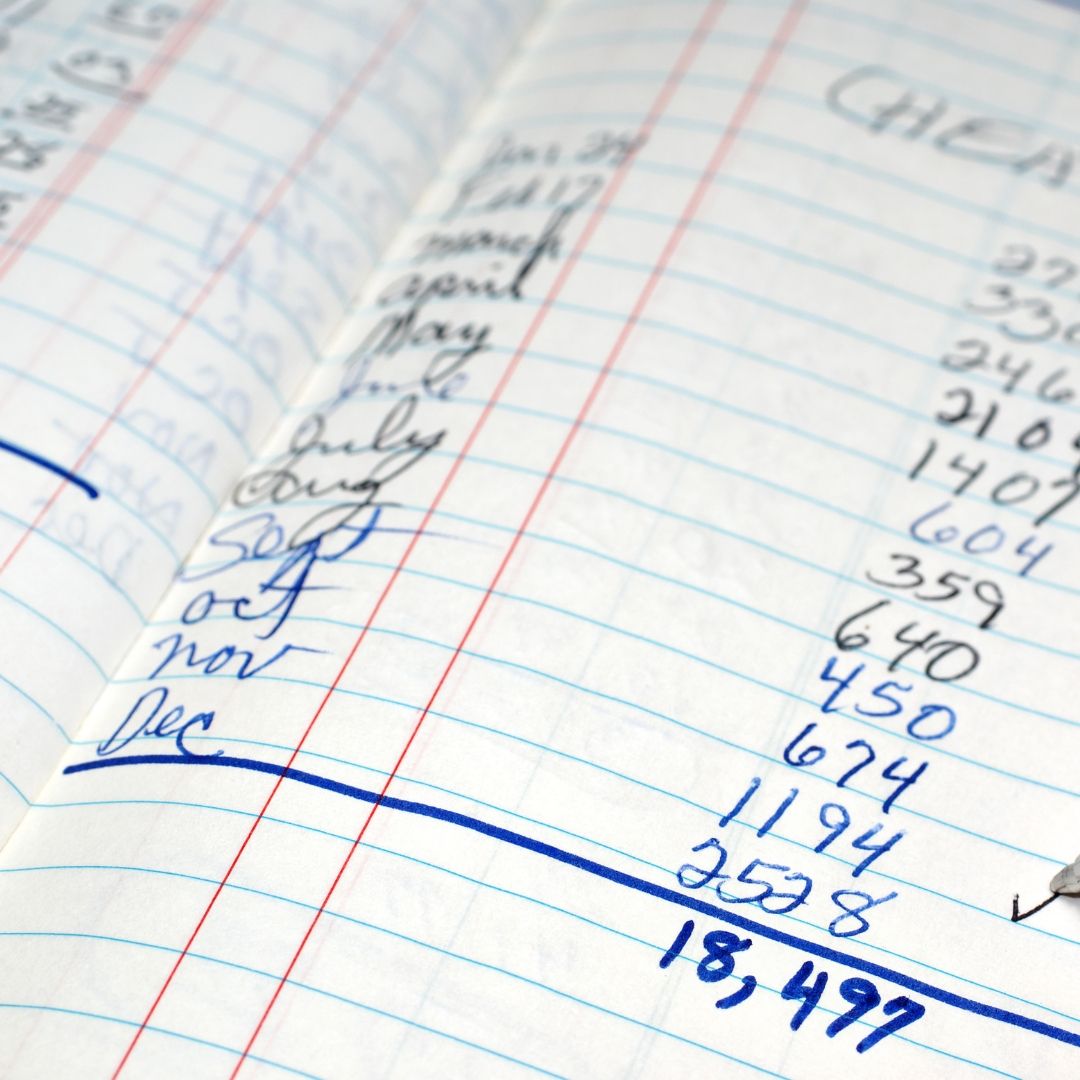 CHEA
Jan 24
Feb 17 27
march 330
april 246
May 2104
June 1407
July 604
Aug 359
Sept 640
oct 450
nov 674
Dec 1194
2528
18,497